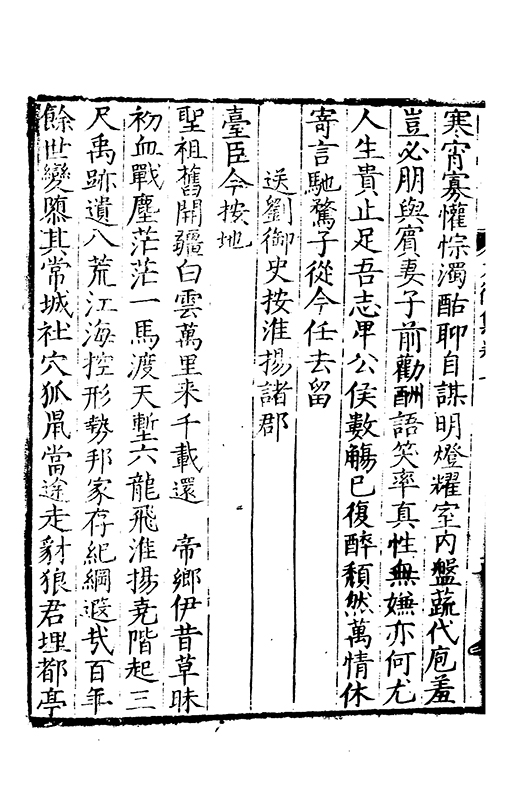 寒宵寡懽悰濁酤聊自謀明燈耀室內盤蔬代庖羞
豈必朋與賓妻子前勸酬語笑率真性無嫌亦何尤
人生貴止足吾志卑公侯數觴已復醉頹然萬情休
寄言馳騖子從今任去留
送劉御史按淮揚諸郡
臺臣今按地
聖祖舊開疆白雲萬里来千載還 帝鄉伊昔草昧
初血戰塵茫茫一馬渡天塹六龍飛淮揚堯階起三
尺禹跡遺八荒江海控形勢邦家存紀綱遐哉百年
餘世變隳其常城社穴狐鼠當途走豺狼君埋都亭